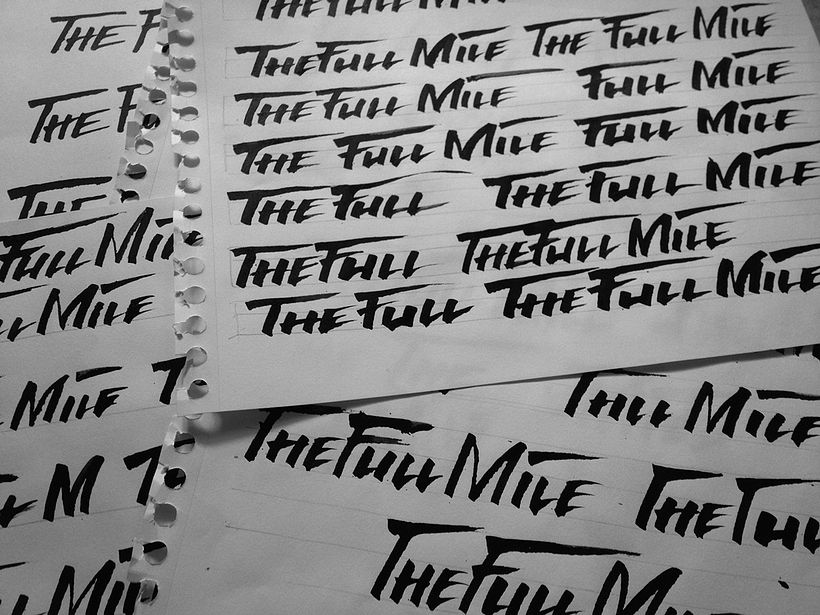 THE FULL MILE
THE FULL MILE THE FULL MILE
THE FULL MILE FULL MILE
THE FULL MILE FULL MILE
THE FULL THE FULL MILE
THE FULL THE FULL MILE
THE FULL THE FULL MILE
THE F
THE F
THE
FULL MILE
LL MILE
MILE T
M T
MIL
THILL MILE
THE FULL MILE THE FULL
THE FULL M